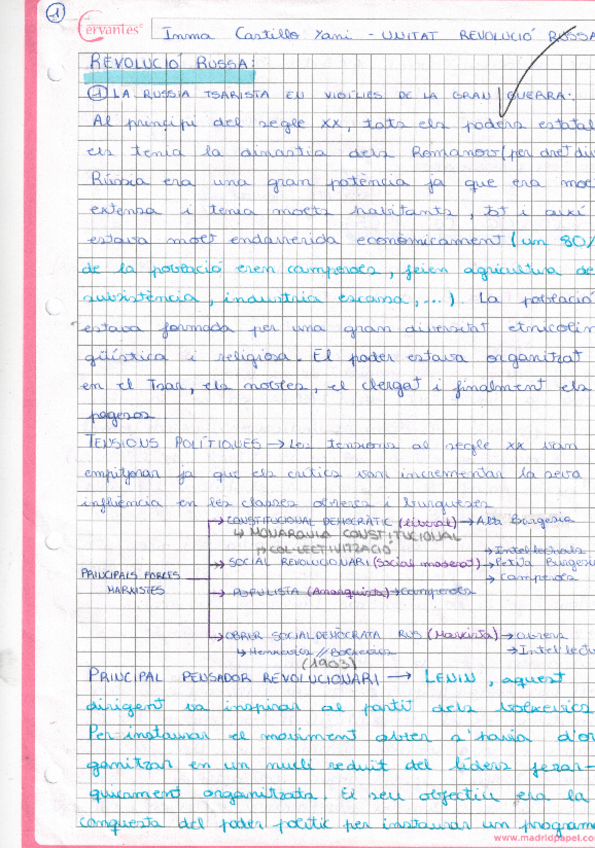 1
Cervantes
Inma Castillo Yani - UNITAT REVOLUCIÓ RUSSA
REVOLUCIÓ RUSSA:
1 LA RUSSIA TSARISTA EN VIGÍLIES DE LA GRAN GUERRA:
Al principi del segle XX, tots els poders estatal
els tenia la dinastia dels Romanov (per dret div
Rússia era una gran potència ja que era molt
extensa i tenia molts habitants, tot i així
estava molt endarrerida econòmicament (un 80%
de la població eren camperols, feien agricultura de
subsistència, indústria escassa, ...). La població
estava formada per una gran diversitat etnicolin
güística i religiosa. El poder estava organitzat
en el Tsar, els nobles, el clergat i finalment els
pagesos
TENSIONS POLÍTIQUES → Les tensions al segle XX van
empitjorar ja que els crítics van incrementar la seva
influència en les classes obreres i burgueses
→ CONSTITUCIONAL DEMOCRÀTIC (liberal) → Alta Burgesia
↳ MONARQUIA CONSTITUCIONAL
↳ COL·LECTIVITZACIÓ
→ Intel·lectuals
→ SOCIAL REVOLUCIONARI (Social moderat) → Petita Burgesi
→ Camperols
PRINCIPALS FORCES
MARXISTES
→ POPULISTA (Anarquista) → Camperols
→ OBRER SOCIALDEMÒCRATA RUS (Marxista) → obrers
↳ Menxevics // Bolxevics → Intel·lectu
(1903)
PRINCIPAL PENSADOR REVOLUCIONARI → LENIN, aquest
dirigent va inspirar al partit dels bolxevics
Per instaurar el moviment obrer s'havia d'or
ganitzar en un nucli reduït del líders jerar-
quicament organitzats. El seu objectiu era la
conquesta del poder polític per instaurar un programa
www.madridpapel.co